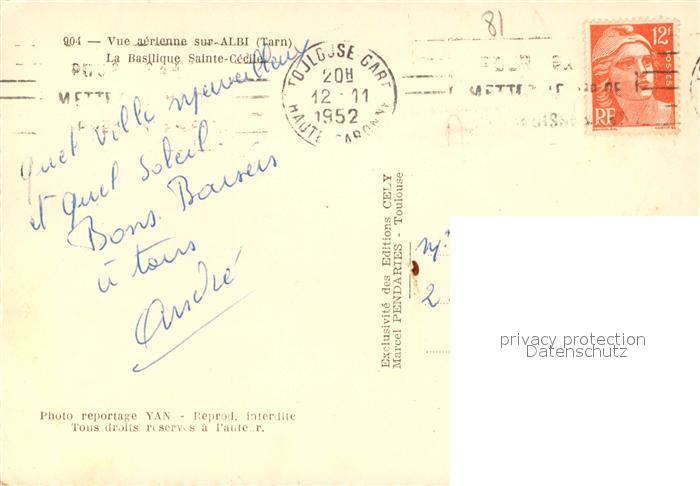 81
904 — Vue aérienne sur ALBI (Tarn)
La Basilique Sainte-Cécile
TOULOUSE GARE
20H
12-11
1952
HAUTE GARONNE
METTE
12F
POSTES
RF
Quel Ville Merveilleux
et quel Soleil.
Bons Baisers
à tous
André
Exclusivité des Editions CELY
Marcel PENDARIES - Toulouse
2
privacy protection
Datenschutz
Photo reportage YAN - Reprod. interdite
Tous droits réservés à l'auteur.